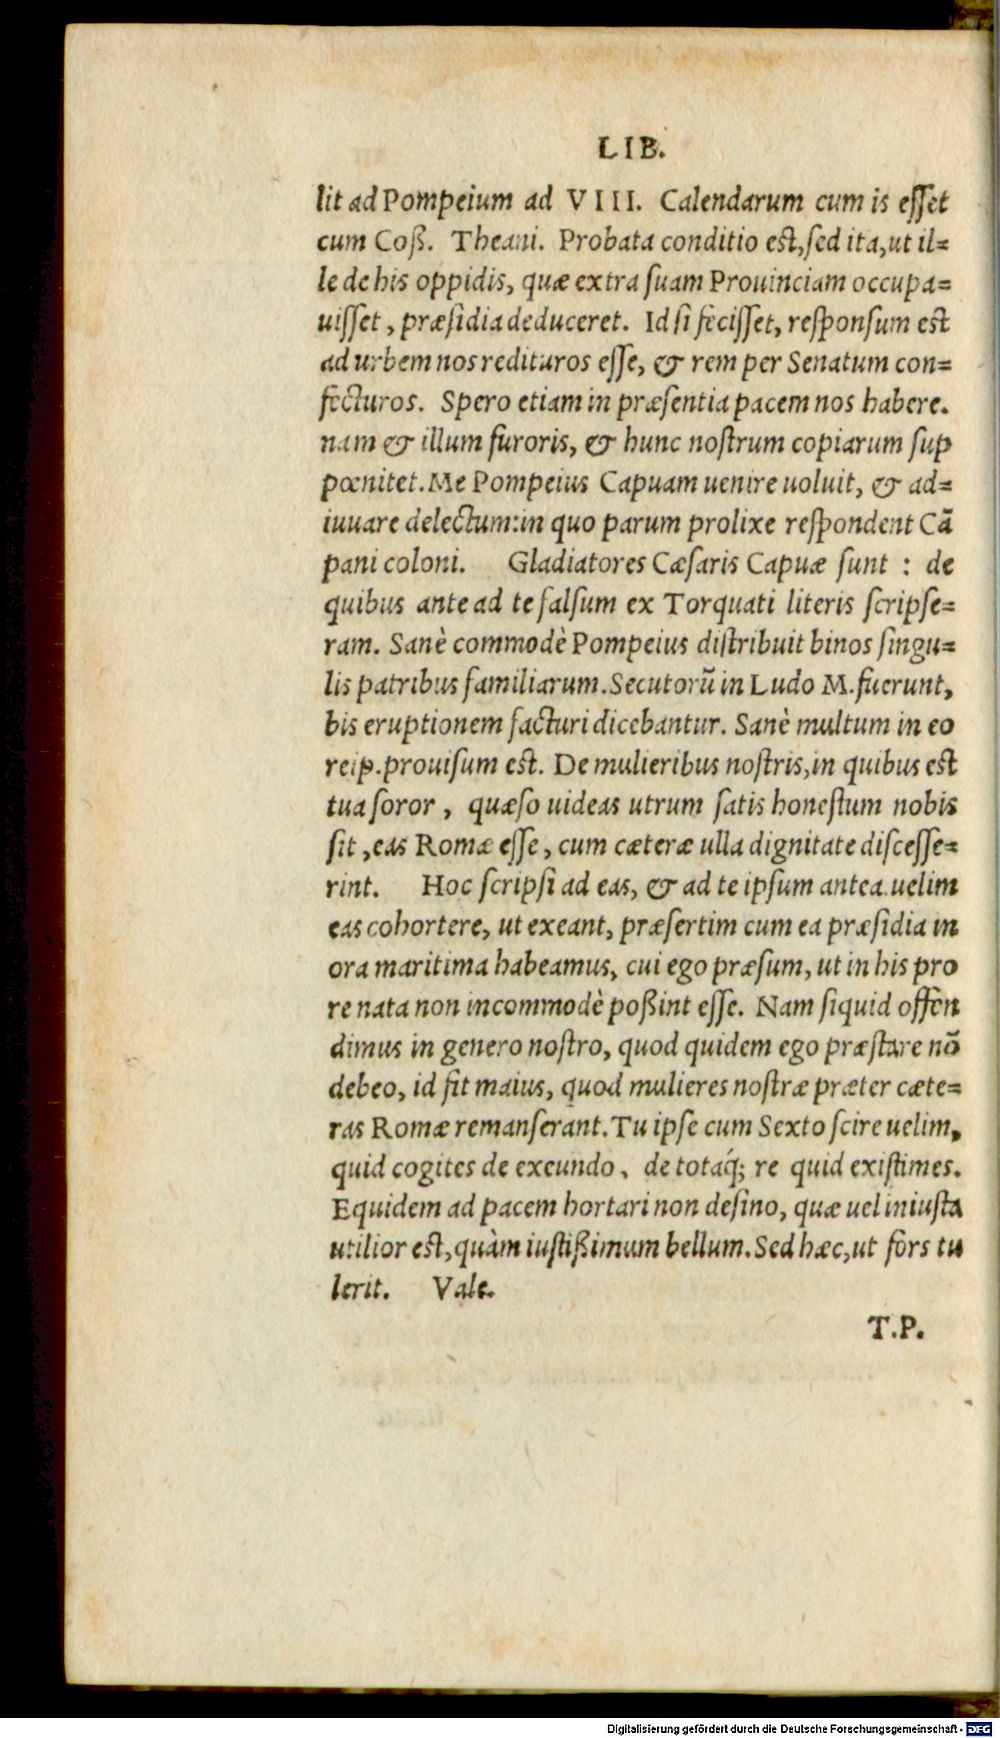 LIB.
lit ad Pompeium ad VIII. Calendarum cum is eſſet
cum Coß. Theani. Probata conditio est, ſed ita, ut il=
le de his oppidis, quæ extra ſuam Prouinciam occupa=
uiſſet, præſidia deduceret. Id ſi feciſſet, reſponſum est
ad urbem nos redituros eſſe, & rem per Senatum con=
fecturos. Spero etiam in præſentia pacem nos habere.
nam & illum furoris, & hunc noſtrum copiarum ſup
pœnitet. Me Pompeius Capuam uenire uoluit, & ad=
iuuare delectum: in quo parum prolixe reſpondent Cā
pani coloni. Gladiatores Cæſaris Capuæ ſunt : de
quibus ante ad te falſum ex Torquati literis ſcripſe=
ram. Sanè commodè Pompeius diſtribuit binos ſingu=
lis patribus familiarum. Secutorū in Ludo M. fuerunt,
bis eruptionem facturi dicebantur. Sanè multum in eo
reip. prouiſum est. De mulieribus noſtris, in quibus est
tua ſoror, quæſo uideas utrum ſatis honeſtum nobis
ſit, eas Romæ eſſe, cum cæteræ ulla dignitate diſceſſe=
rint. Hoc ſcripſi ad eas, & ad te ipſum antea. uelim
eas cohortere, ut exeant, præſertim cum ea præſidia in
ora maritima habeamus, cui ego præſum, ut in his pro
re nata non incommodè poßint eſſe. Nam ſiquid offen
dimus in genero noſtro, quod quidem ego præſtare nō
debeo, id fit maius, quod mulieres noſtræ præter cæte=
ras Romæ remanſerant. Tu ipſe cum Sexto ſcire uelim,
quid cogites de exeundo, de totaq́; re quid exiſtimes.
Equidem ad pacem hortari non deſino, quæ uel iniuſta
utilior est, quàm iuſtißimum bellum. Sed hæc, ut fors tu
lerit. Vale.
T.P.
Digitalisierung gefördert durch die Deutsche Forschungsgemeinschaft - DFG